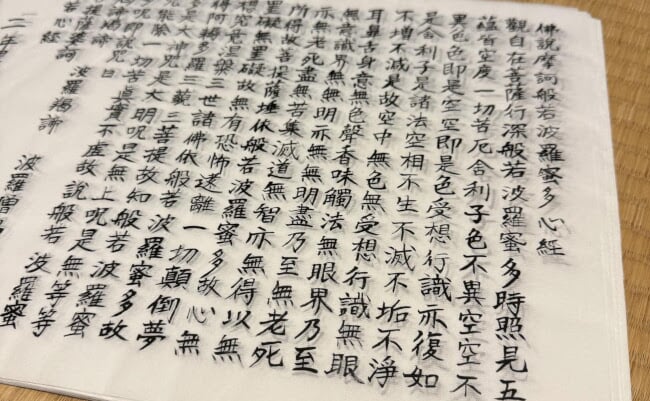 佛説摩訶般若波羅蜜多心經
觀自在菩薩行深般若波羅蜜多時照見五
蘊皆空度一切苦厄舍利子色不異空空不
異色色即是空空即是色受想行識亦復如
是舍利子是諸法空相不生不滅不垢不淨
不增不減是故空中無色無受想行識無眼
耳鼻舌身意無色聲香味觸法無眼界乃至
無意識界無無明亦無無明盡乃至無老死
亦無老死盡無苦集滅道無智亦無得以無
所得故菩提薩埵依般若波羅蜜多故心無
罣礙無罣礙故無有恐怖遠離一切顛倒夢
想究竟涅槃三世諸佛依般若波羅蜜多故
得阿耨多羅三藐三菩提故知般若波羅蜜
多是大神呪是大明呪是無上呪是無等等
呪能除一切苦真實不虚故説般若波羅蜜
多呪即説呪曰
羯諦 波羅羯諦 波羅僧
菩提薩婆訶
心經
二年